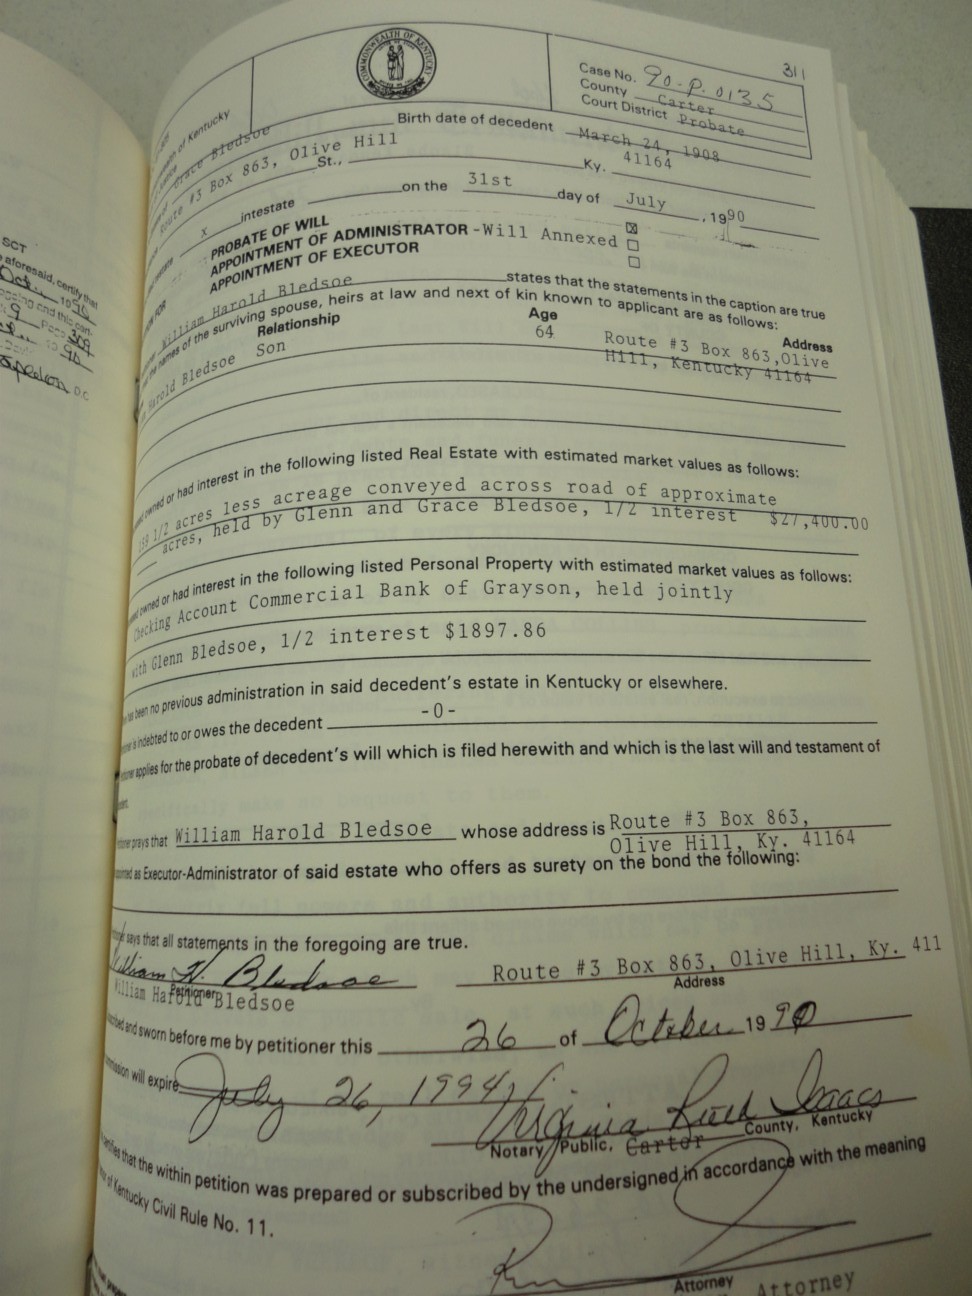 311
COMMONWEALTH OF KENTUCKY
Case No. 90-P-0135
County Carter
Court District Probate
of Kentucky
Grace Bledsoe Birth date of decedent March 24, 1908
Route #3 Box 863, Olive Hill St., Ky. 41164
x intestate on the 31st day of July, 1990
PROBATE OF WILL ☒
APPOINTMENT OF ADMINISTRATOR -Will Annexed ☐
APPOINTMENT OF EXECUTOR ☐
William Harold Bledsoe states that the statements in the caption are true
the names of the surviving spouse, heirs at law and next of kin known to applicant are as follows:
Relationship Age Address
Harold Bledsoe Son 64 Route #3 Box 863,Olive
Hill, Kentucky 41164
owned or had interest in the following listed Real Estate with estimated market values as follows:
1/2 acres less acreage conveyed across road of approximate
acres, held by Glenn and Grace Bledsoe, 1/2 interest $27,400.00
owned or had interest in the following listed Personal Property with estimated market values as follows:
Checking Account Commercial Bank of Grayson, held jointly
with Glenn Bledsoe, 1/2 interest $1897.86
has been no previous administration in said decedent's estate in Kentucky or elsewhere.
is indebted to or owes the decedent -0-
applies for the probate of decedent's will which is filed herewith and which is the last will and testament of
prays that William Harold Bledsoe whose address is Route #3 Box 863,
Olive Hill, Ky. 41164
as Executor-Administrator of said estate who offers as surety on the bond the following:
says that all statements in the foregoing are true.
William H. Bledsoe Route #3 Box 863, Olive Hill, Ky. 411
Petitioner Address
William Harold Bledsoe
and sworn before me by petitioner this 26 of October 1990
will expire July 26, 1994
Virginia Ruth Isaacs
Notary Public, Carter County, Kentucky
that the within petition was prepared or subscribed by the undersigned in accordance with the meaning
of Kentucky Civil Rule No. 11.
Attorney
Attorney
SCT
aforesaid, certify that